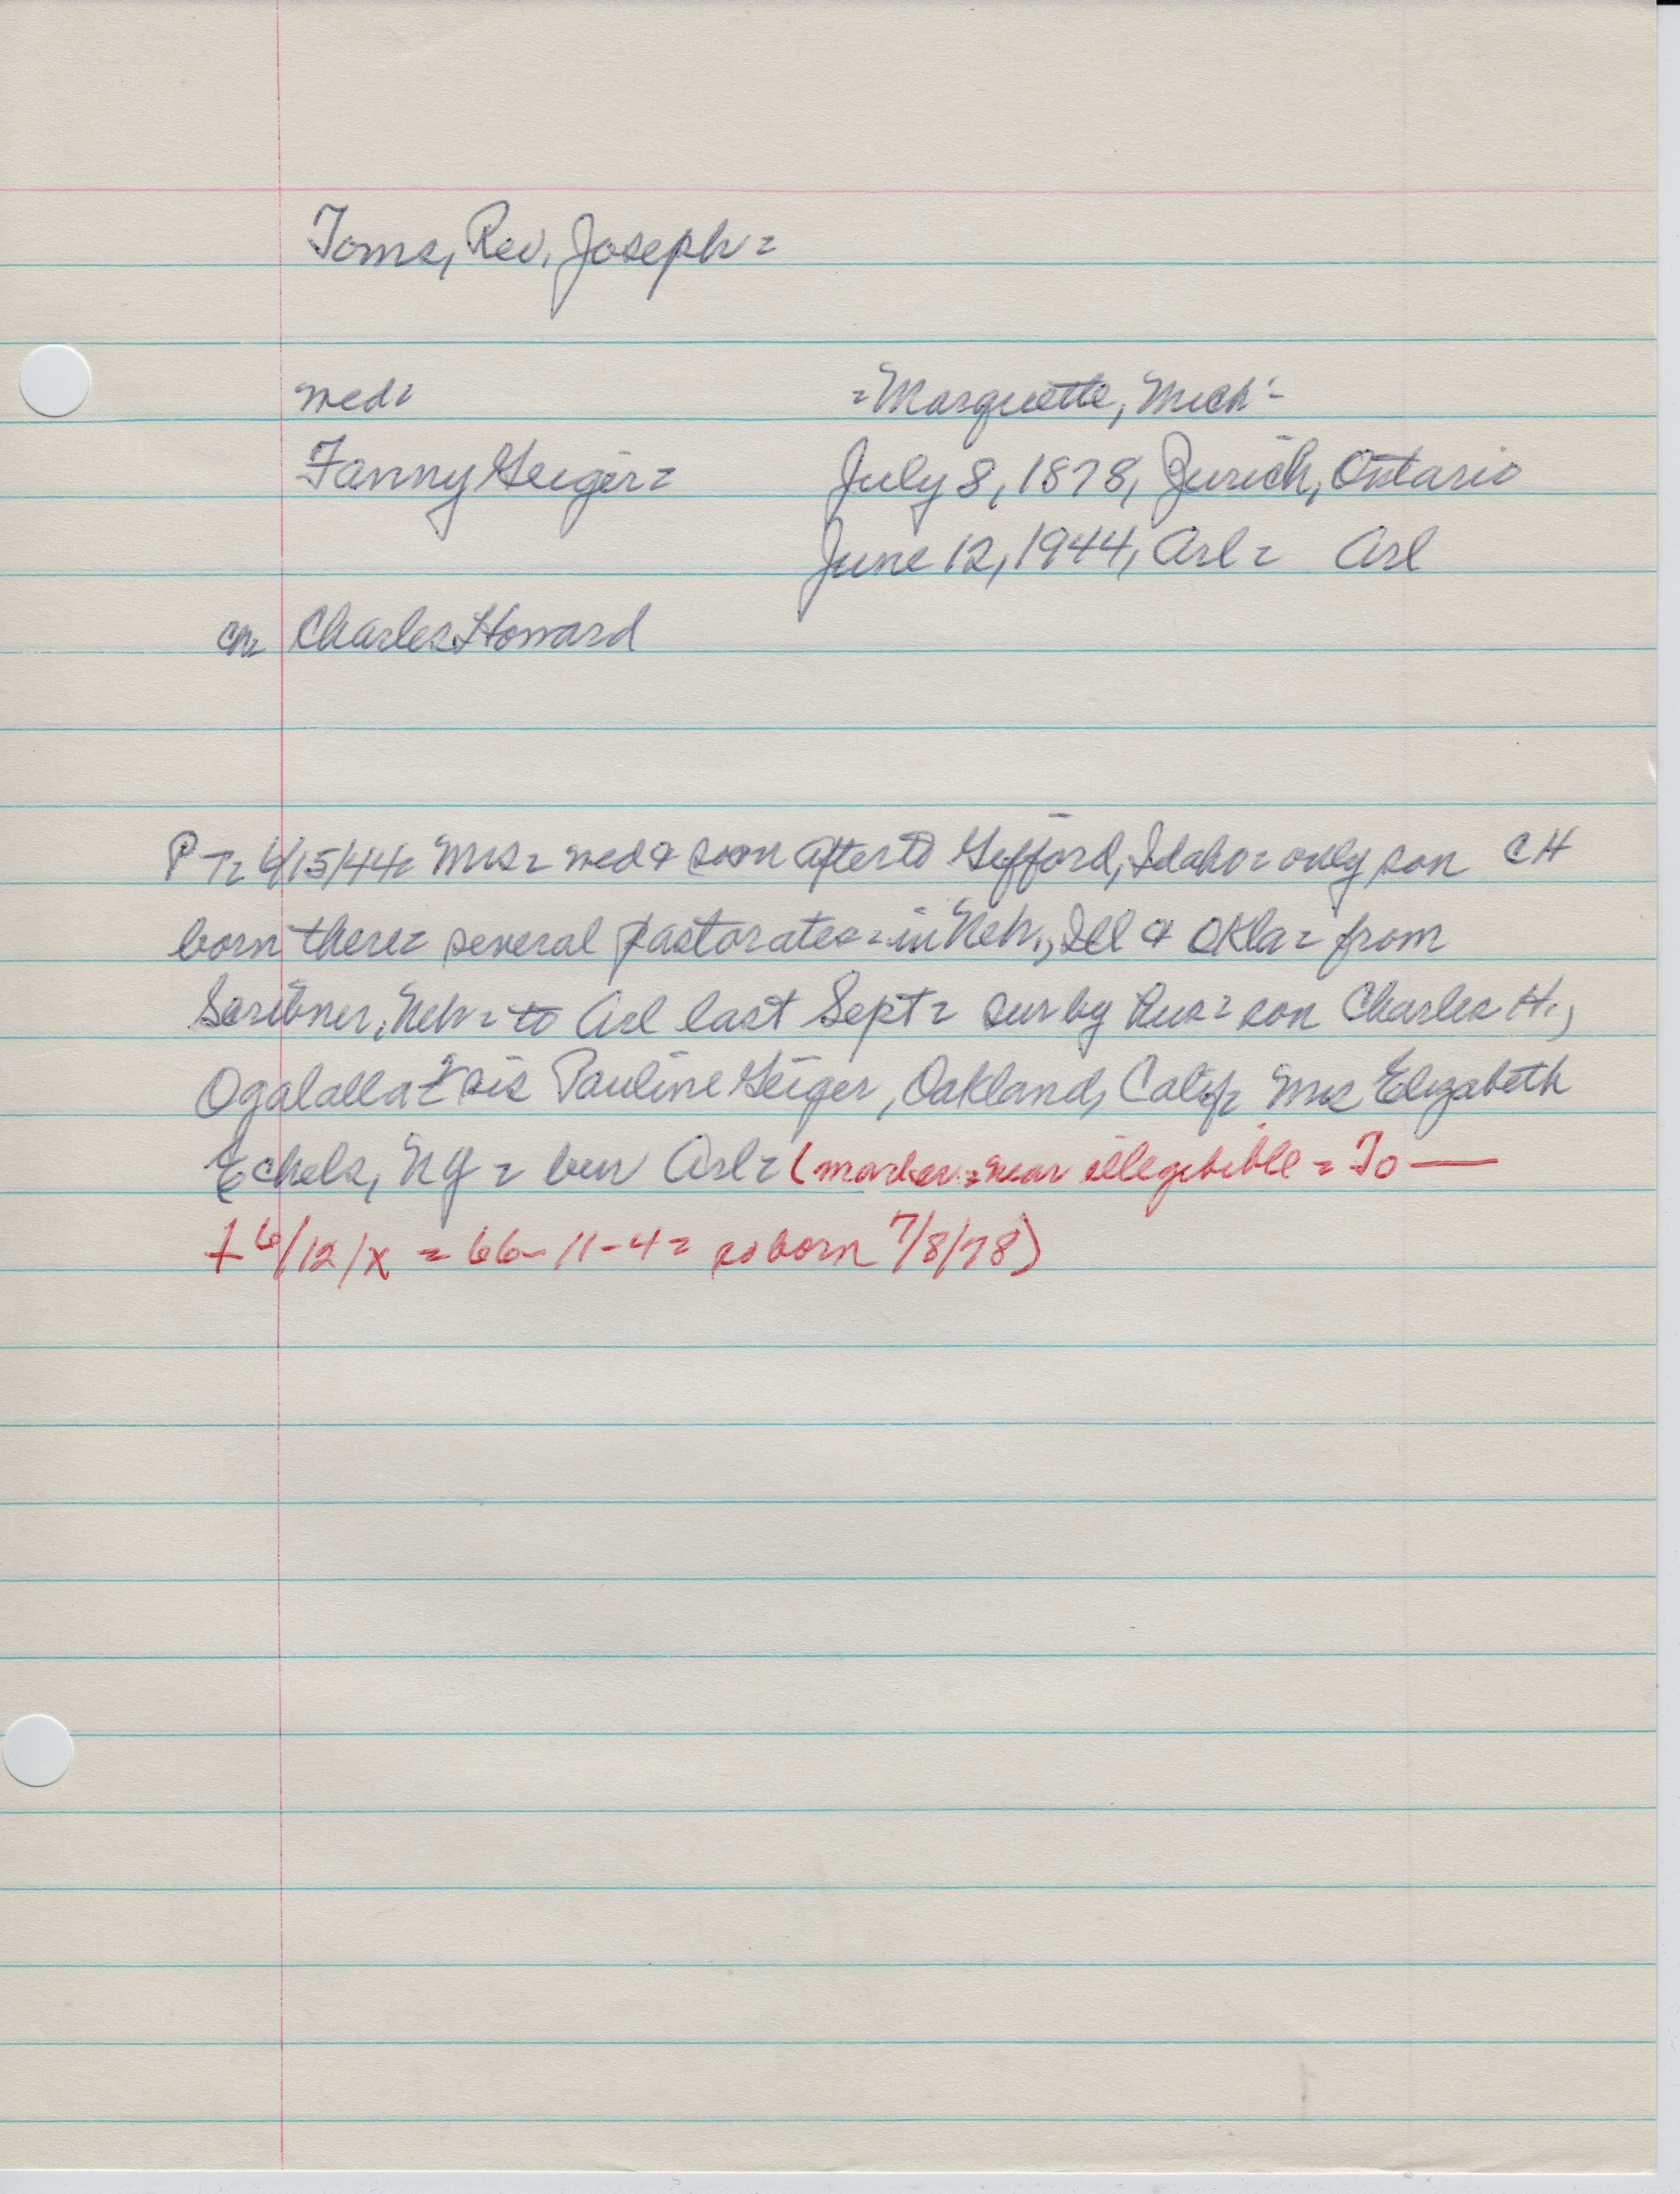 Toms, Rev. Joseph =
wed = = Marquette, Mich =
Fanny Geiger = July 8, 1878, Zurich, Ontario
June 12, 1944, Arl = Arl
ch = Charles Howard
P T = 6/15/44 = Mrs = wed & soon after to Gifford, Idaho = only son CH
born there = several pastorates = in Neb., Ill & Okla = from
Scribner, Neb = to Arl last Sept = sur by hus = son Charles H.,
Ogalalla = 2 sis Pauline Geiger, Oakland, Calif = Mrs Elizabeth
Echels, NY = bur Arl = (marker = near illegibible = To —
+ 6/12/x = 66 - 11 - 4 = so born 7/8/78)